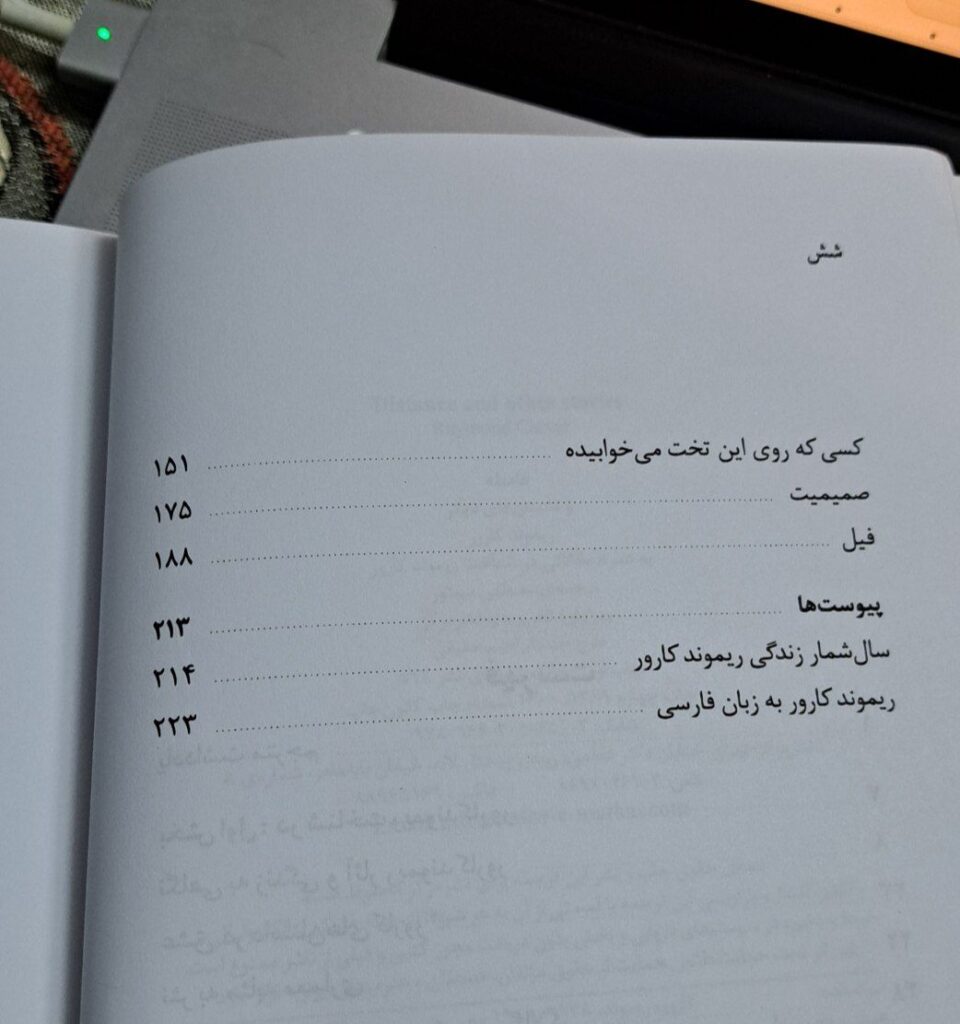 شش
کسی که روی این تخت می‌خوابیده ........ ۱۵۱
صمیمیت ........ ۱۷۵
فیل ........ ۱۸۸
پیوست‌ها ........ ۲۱۳
سال‌شمار زندگی ریموند کارور ........ ۲۱۴
ریموند کارور به زبان فارسی ........ ۲۲۳